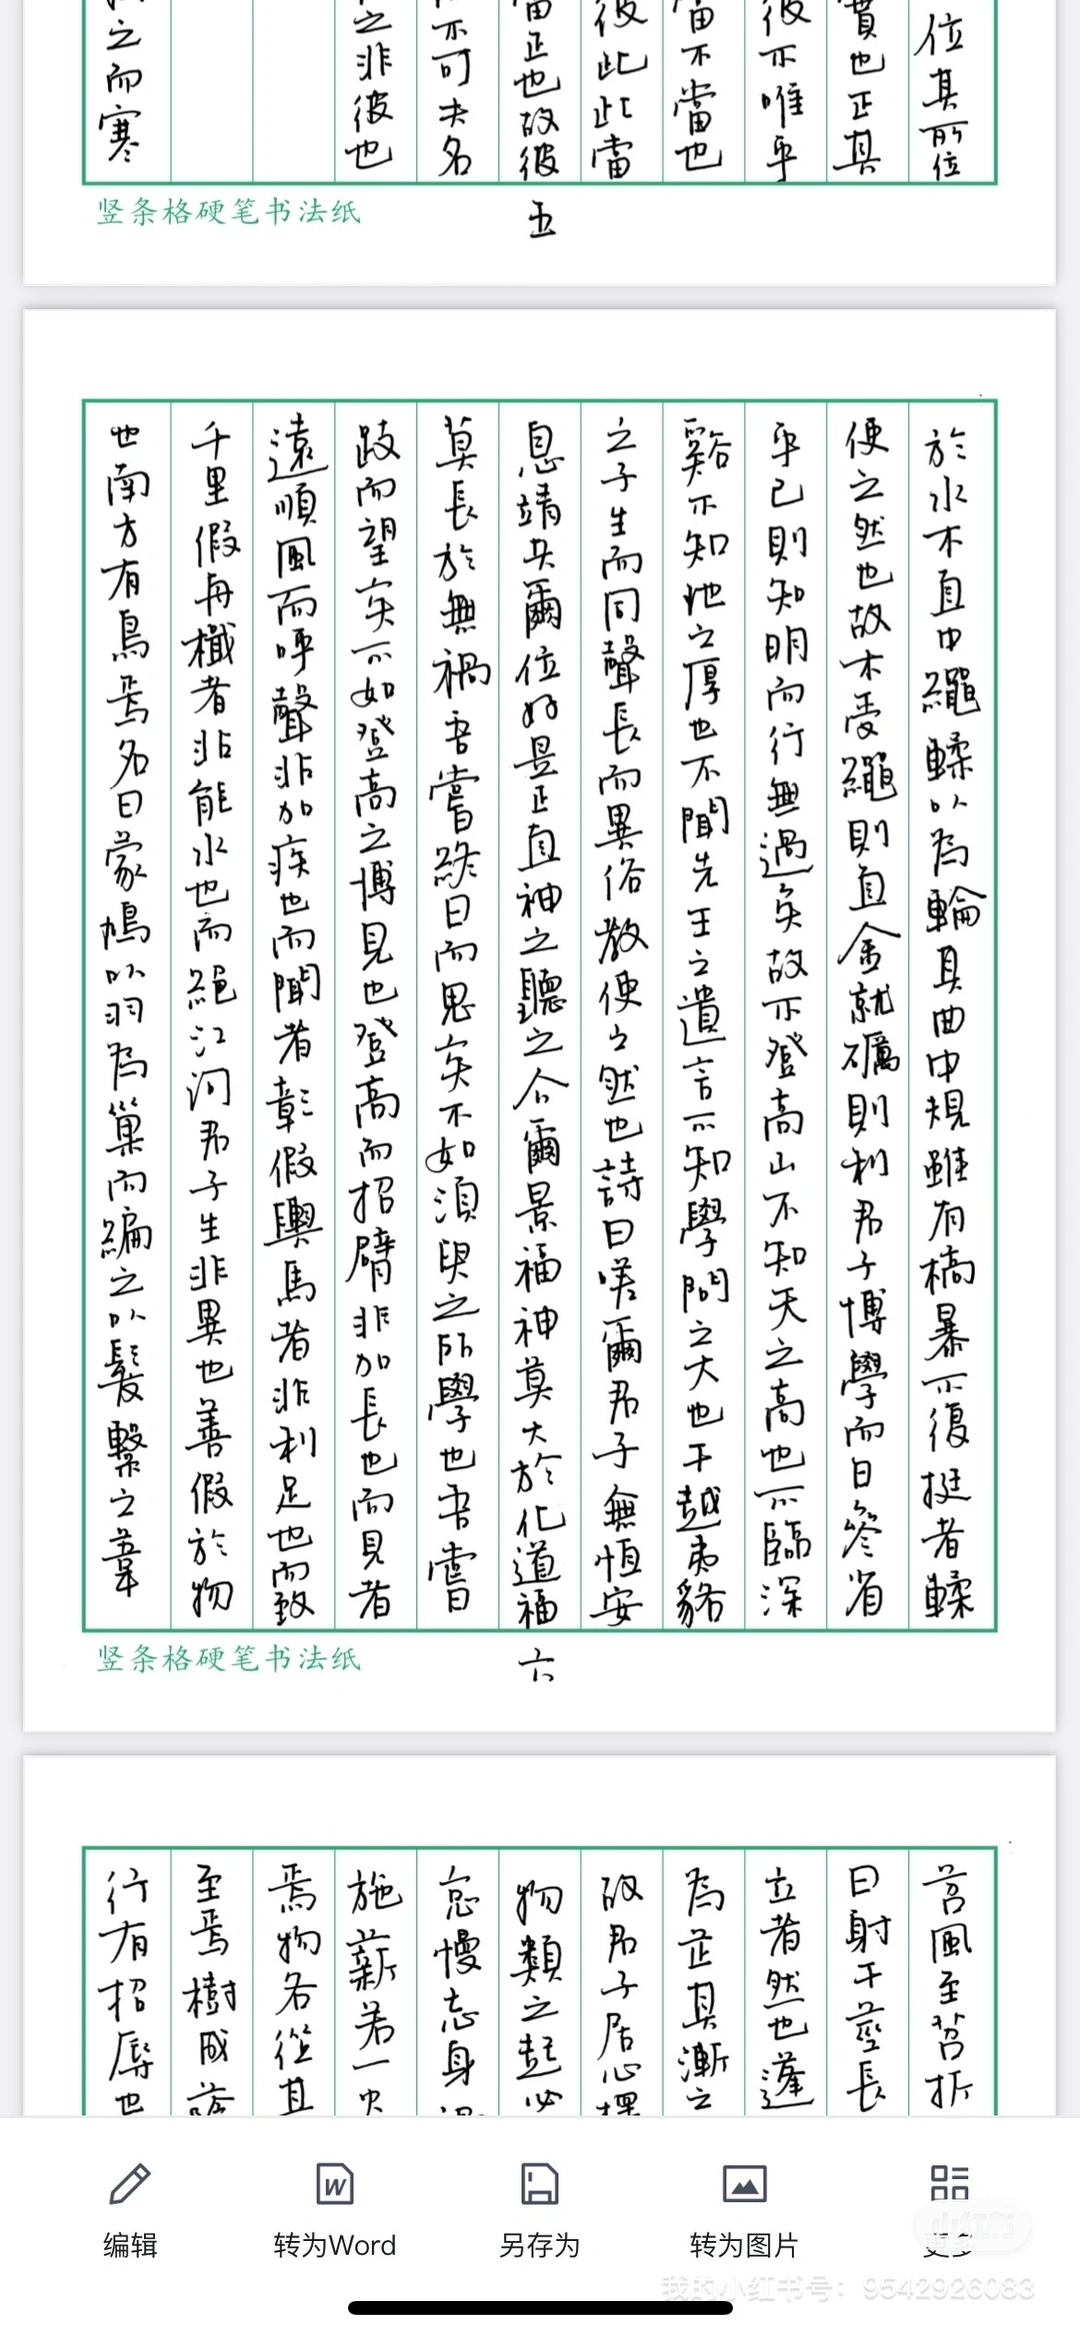 位其所位
實也正其
彼不唯乎
當不當也
彼此此當
當正也故彼
不可夫名
之非彼也
之而寒
竖条格硬笔书法纸
五
於水木直中繩輮以為輪其曲中規雖有槁暴不復挺者輮
使之然也故木受繩則直金就礪則利君子博學而日參省
乎己則知明而行無過矣故不登高山不知天之高也不臨深
谿不知地之厚也不聞先王之遺言不知學問之大也干越夷貉
之子生而同聲長而異俗教使之然也詩曰嗟爾君子無恆安
息靖共爾位好是正直神之聽之介爾景福神莫大於化道福
莫長於無禍吾嘗終日而思矣不如須臾之所學也吾嘗
跂而望矣不如登高之博見也登高而招臂非加長也而見者
遠順風而呼聲非加疾也而聞者彰假輿馬者非利足也而致
千里假舟檝者非能水也而絕江河君子生非異也善假於物
也南方有鳥焉名曰蒙鳩以羽為巢而編之以髮繫之葦
竖条格硬笔书法纸
六
苕風至苕折
曰射干莖長
立者然也蓬
為芷其漸之
故君子居必擇
物類之起必
怠慢忘身
施薪若一火
焉物各從其
至焉樹成蔭
行有招辱也
编辑
转为Word
另存为
转为图片
更多
小红书
我的小红书号：9542926083